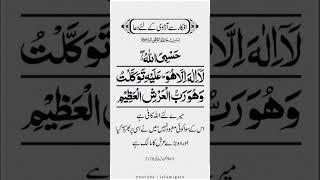 افکار سے آزادی کے لئے دعا
حَسْبِیَ اللّٰهُ
لَاۤ اِلٰهَ اِلَّا هُوَ عَلَیْهِ تَوَكَّلْتُ
وَهُوَ رَبُّ الْعَرْشِ الْعَظِیْمِ
میرے لئے اللہ کافی ہے
اس کے سوا کوئی معبود نہیں میں نے اسی پر بھروسہ کیا
اور وہ بڑے عرش کا مالک ہے